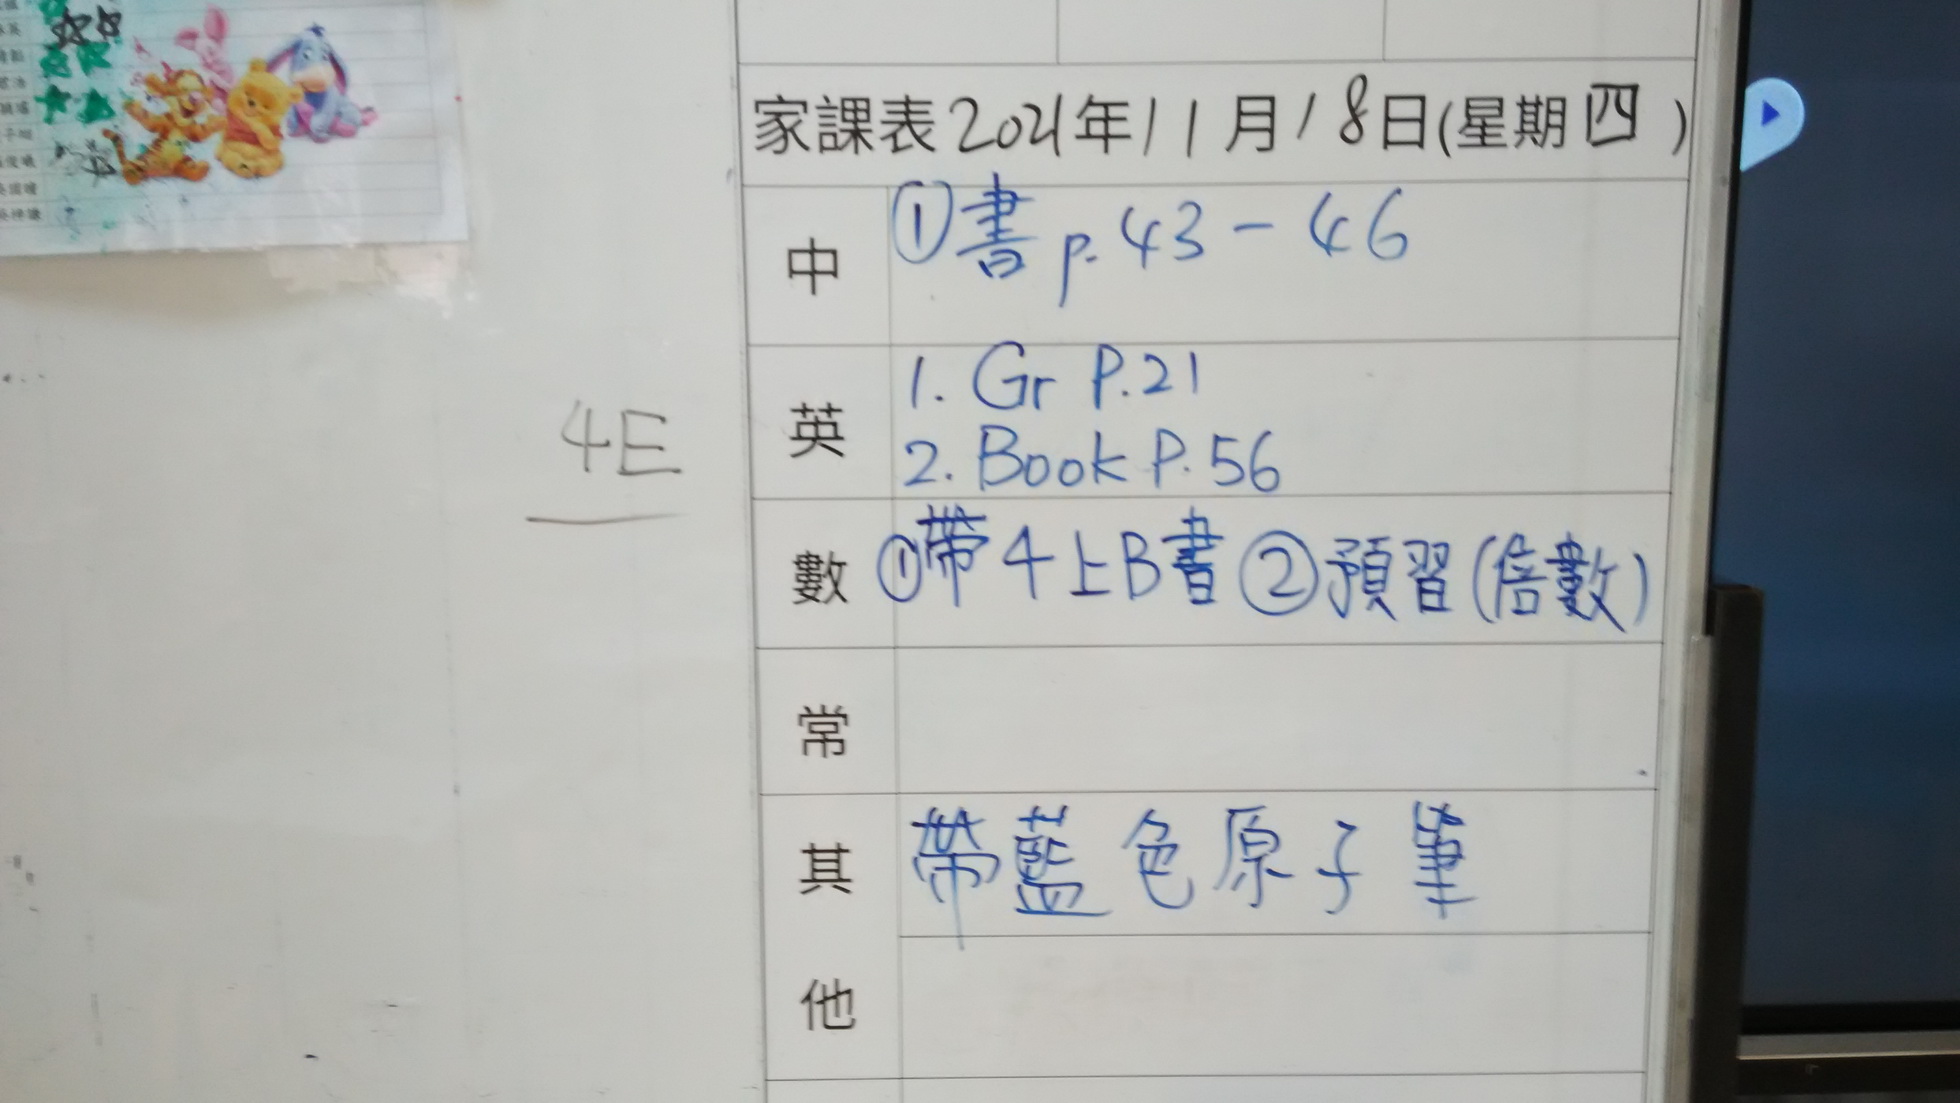 家課表2021年11月18日(星期四)
中
①書p.43-46
4E
英
1. Gr P.21
2. Book P.56
數
①帶4上B書②預習(倍數)
常
其他
帶藍色原子筆